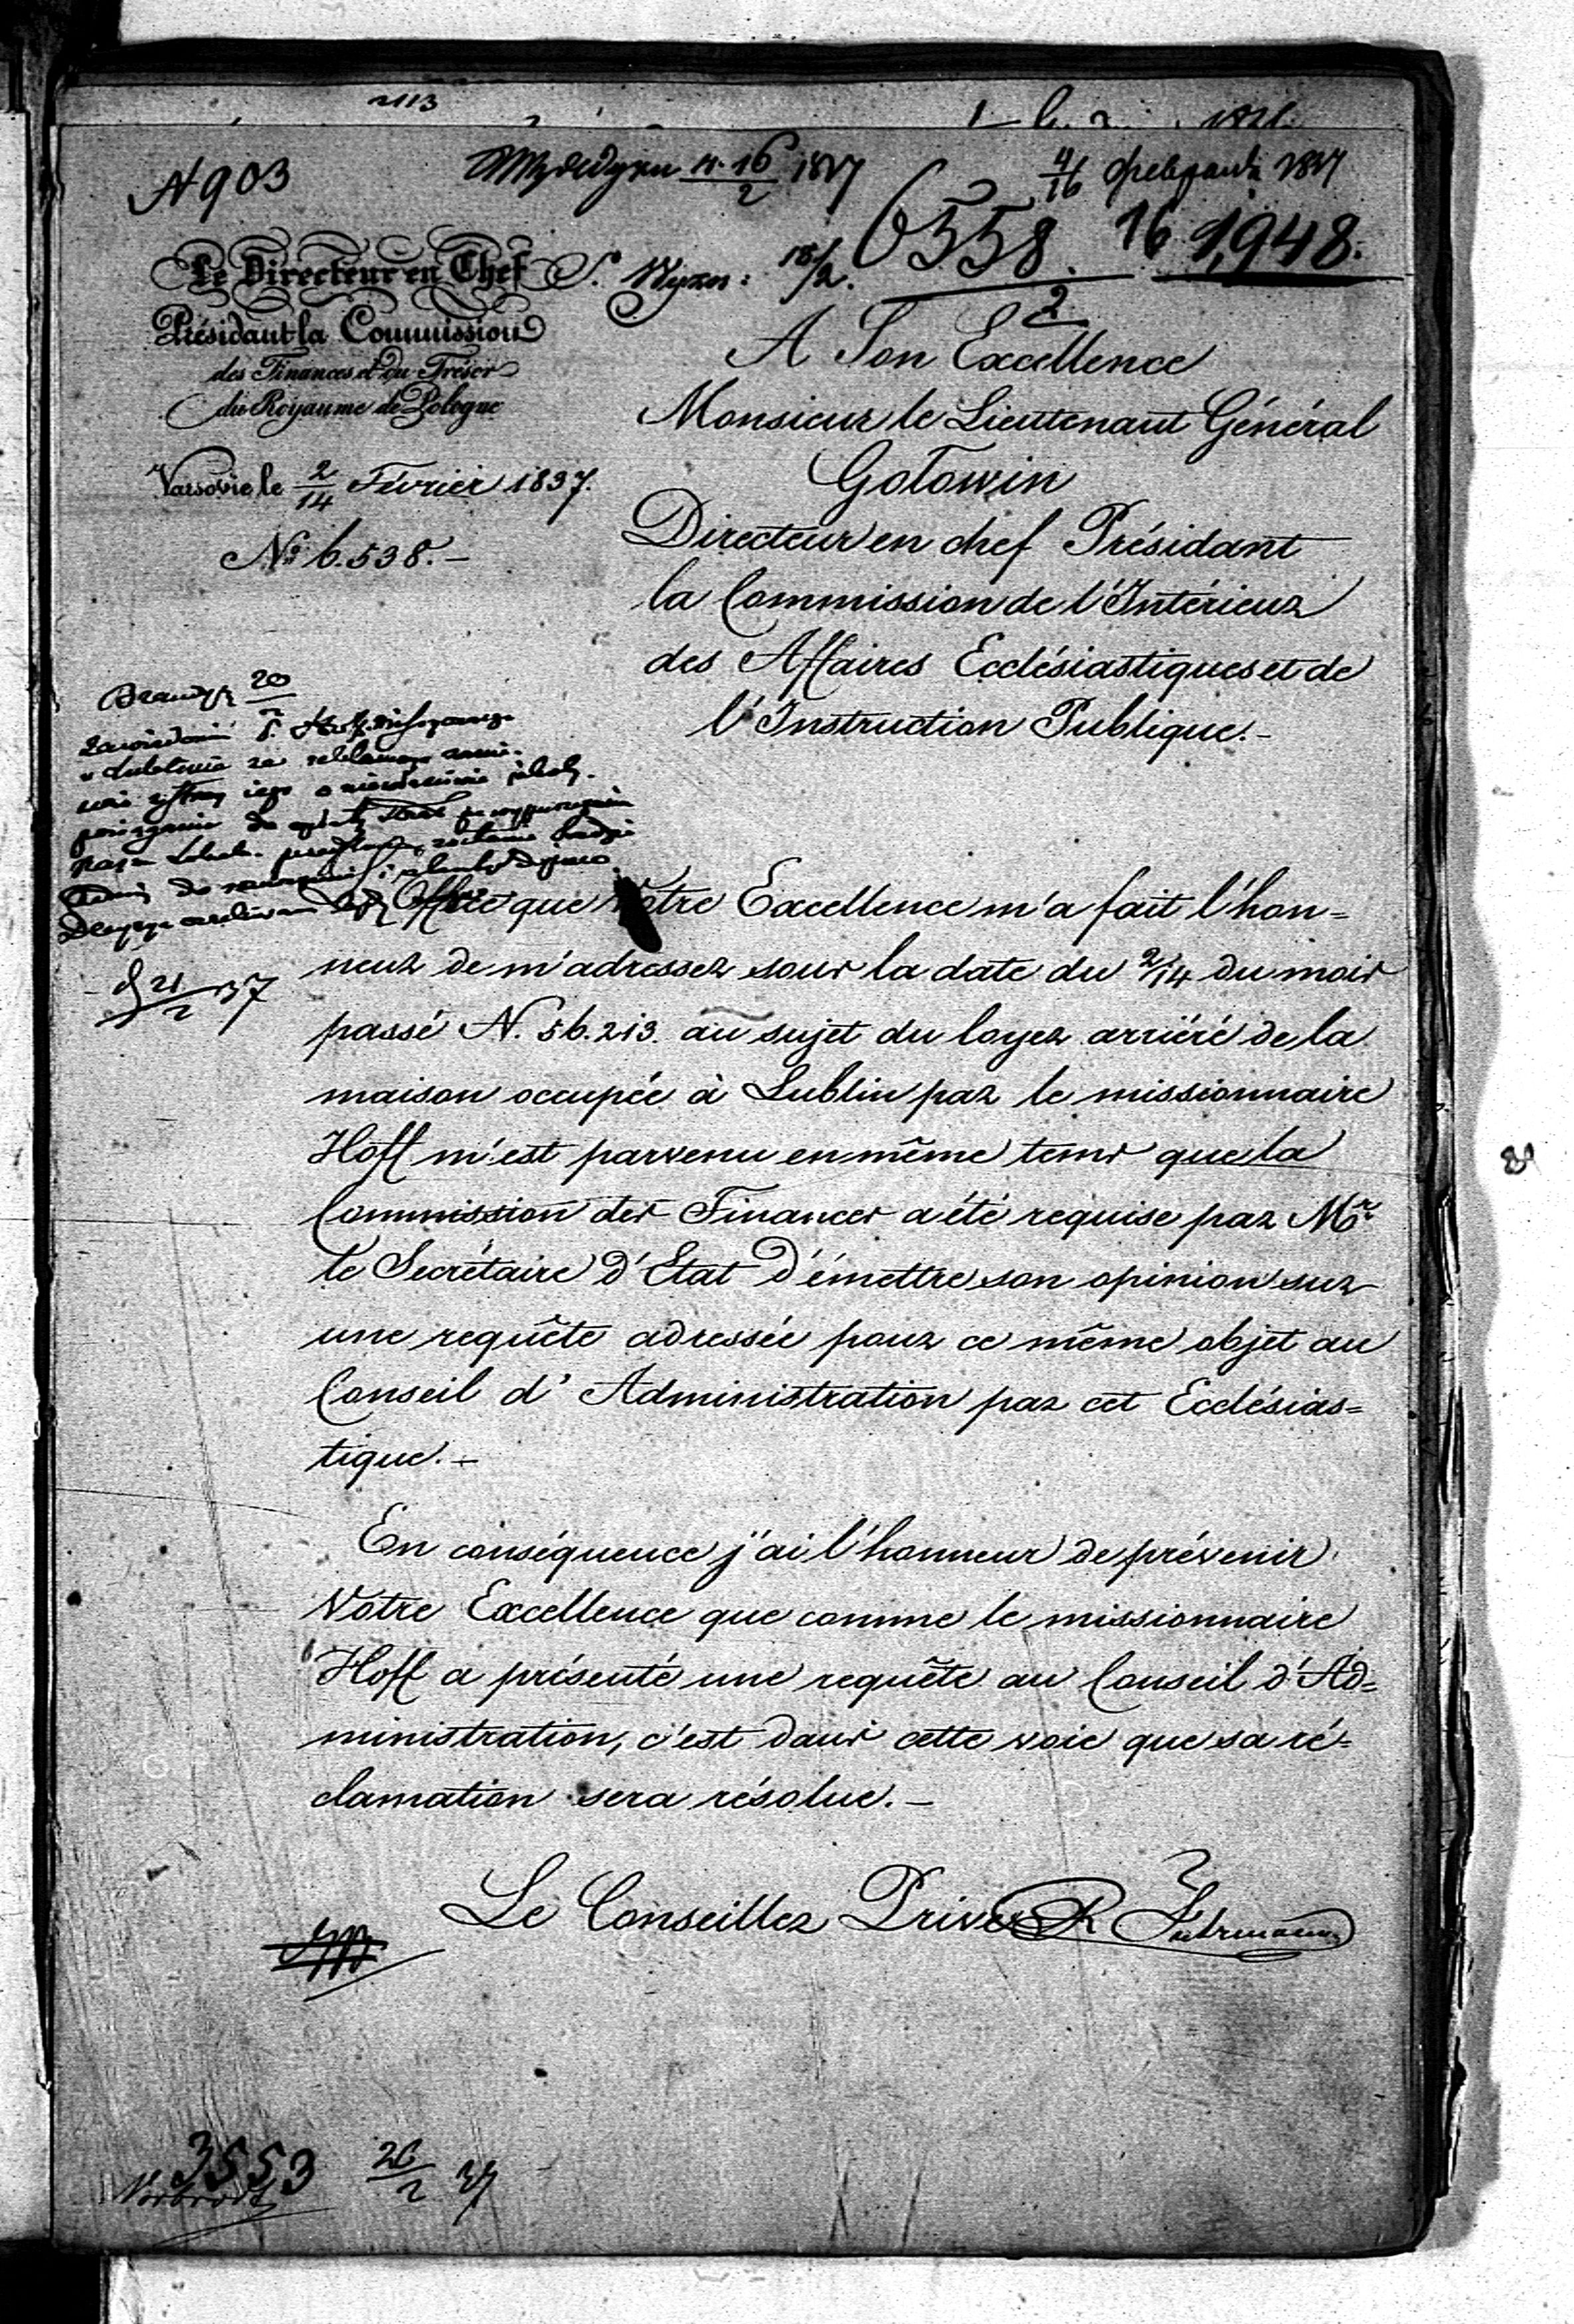 2113
N 903
16/2 1837
4/16 февраля 1837
6558. 16/2 1,948.
S. Wyzn: 18/2.
Le Directeur en Chef
Présidant la Commission
des Finances et du Trésor
du Royaume de Pologne
Varsovie le 2/14 Février 1837.
No 6.538.-
A Son Excellence
Monsieur le Lieutenant Général
Gołowin
Directeur en chef Présidant
la Commission de l'Intérieur
des Affaires Ecclésiastiques et de
l'Instruction Publique.-
20
21/2 37
L'Office que Votre Excellence m'a fait l'hon=
neur de m'adresser sous la date du 2/14 du mois
passé N. 56.213. au sujet du loyer arriéré de la
maison occupée à Lublin par le missionnaire
Hoff m'est parvenu en même tems que la
Commission des Finances a été requise par Mr
le Secrétaire d'Etat d'émettre son opinion sur
une requête adressée pour ce même objet au
Conseil d'Administration par cet Ecclésias=
tique.-
En conséquence j'ai l'honneur de prévenir
Votre Excellence que comme le missionnaire
Hoff a présenté une requête au Conseil d'Ad=
ministration, c'est dans cette voie que sa ré=
clamation sera résolue.-
Le Conseiller Privé R Fuhrmann
3553 26/2 37